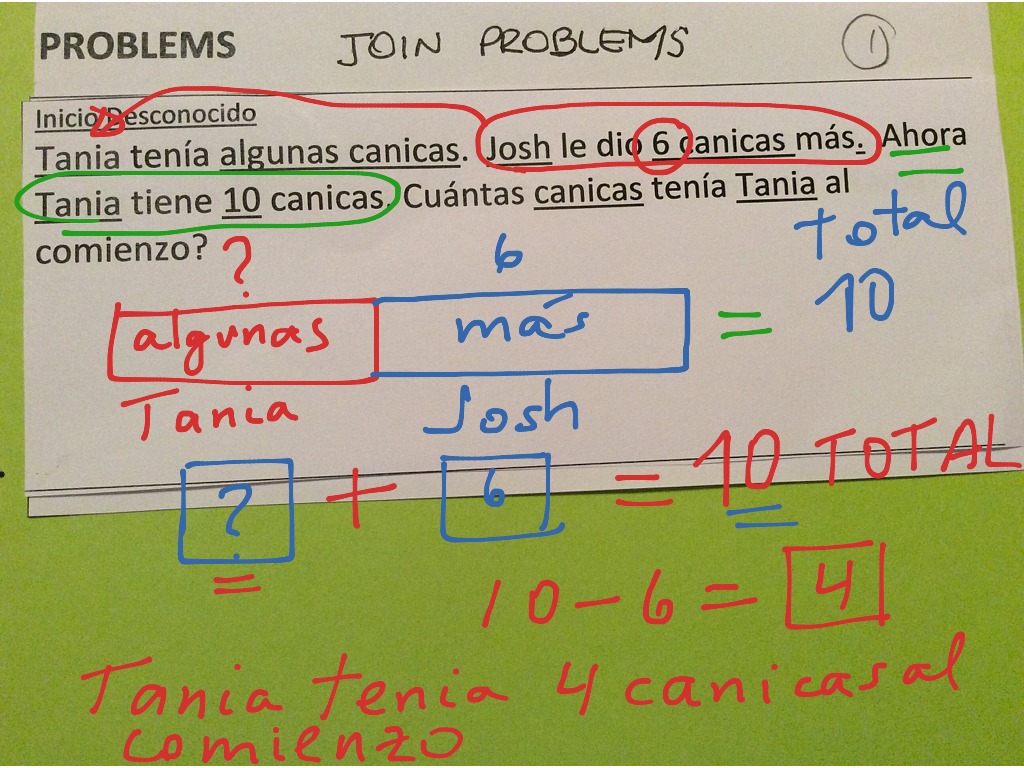 PROBLEMS JOIN PROBLEMS 1
Inicio Desconocido
Tania tenía algunas canicas. Josh le dio 6 canicas más. Ahora
Tania tiene 10 canicas. Cuántas canicas tenía Tania al
comienzo?
? 6 total
algunas más = 10
Tania Josh
? + 6 = 10 TOTAL
=
10 - 6 = 4
Tania tenia 4 canicas al
comienzo